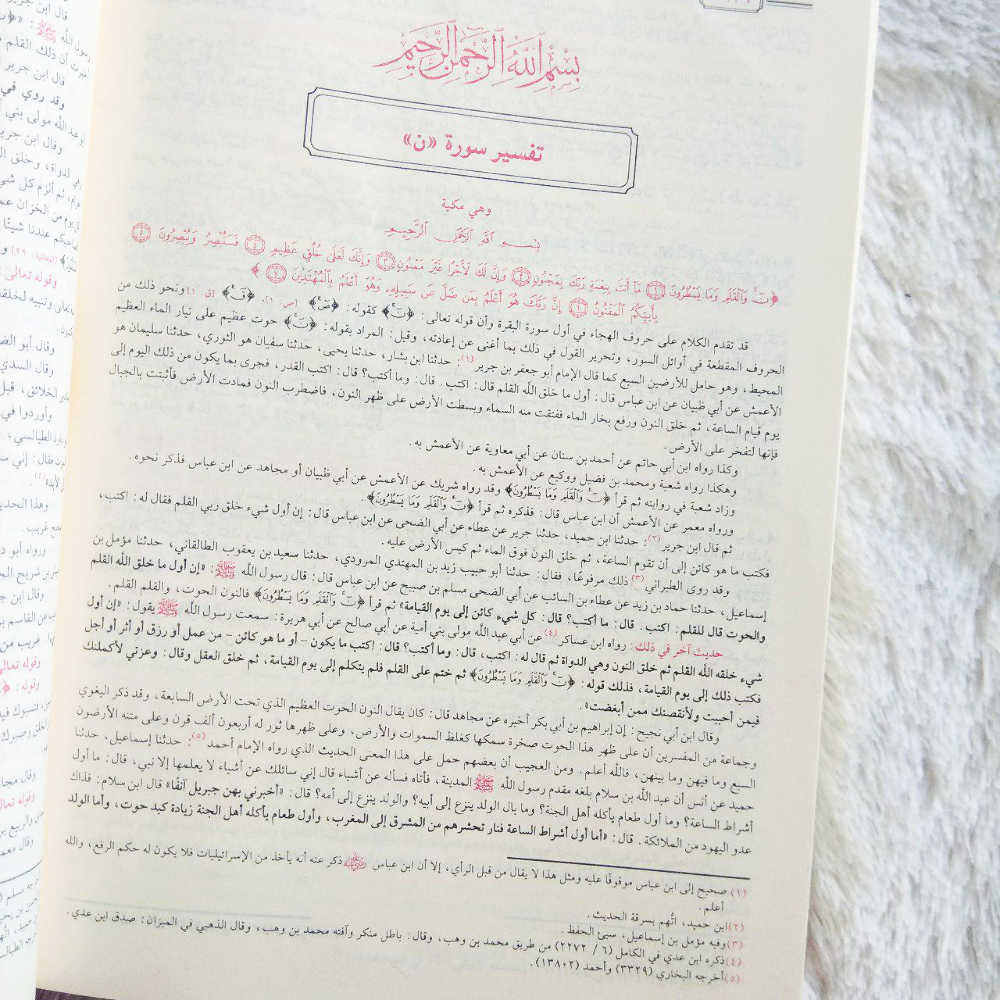 بسم الله الرحمن الرحيم
تفسير سورة «ن»
وهي مكية
بسم الله الرحمن الرحيم
﴿نٓ وَٱلْقَلَمِ وَمَا يَسْطُرُونَ ١ مَآ أَنتَ بِنِعْمَةِ رَبِّكَ بِمَجْنُونٍ ٢ وَإِنَّ لَكَ لَأَجْرًا غَيْرَ مَمْنُونٍ ٣ وَإِنَّكَ لَعَلَىٰ خُلُقٍ عَظِيمٍ ٤ فَسَتُبْصِرُ وَيُبْصِرُونَ ٥
بِأَييِّكُمُ ٱلْمَفْتُونُ ٦ إِنَّ رَبَّكَ هُوَ أَعْلَمُ بِمَن ضَلَّ عَن سَبِيلِهِۦ وَهُوَ أَعْلَمُ بِٱلْمُهْتَدِينَ ٧﴾
قد تقدم الكلام على حروف الهجاء في أول سورة البقرة وأن قوله تعالى: ﴿نٓ﴾ كقوله: ﴿صٓ﴾ [ص: ١]. ﴿قٓ﴾ [ق: ١] ونحو ذلك من
الحروف المقطعة في أوائل السور، وتحرير القول في ذلك بما أغنى عن إعادته، وقيل: المراد بقوله: ﴿نٓ﴾ حوت عظيم على تيار الماء العظيم
المحيط، وهو حامل للأرضين السبع كما قال الإمام أبو جعفر بن جرير(١): حدثنا ابن بشار، حدثنا يحيى، حدثنا سفيان هو الثوري، حدثنا سليمان هو
الأعمش عن أبي ظبيان عن ابن عباس قال: أول ما خلق الله القلم قال: اكتب. قال: وما أكتب؟ قال: اكتب القدر، فجرى بما يكون من ذلك اليوم إلى
يوم قيام الساعة، ثم خلق النون ورفع بخار الماء ففتقت منه السماء وبسطت الأرض على ظهر النون، فاضطرب النون فمادت الأرض فأثبتت بالجبال
فإنها لتفخر على الأرض.
وكذا رواه ابن أبي حاتم عن أحمد بن سنان عن أبي معاوية عن الأعمش به.
وهكذا رواه شعبة ومحمد بن فضيل ووكيع عن الأعمش به.
وزاد شعبة في روايته ثم قرأ ﴿نٓ وَٱلْقَلَمِ وَمَا يَسْطُرُونَ﴾ وقد رواه شريك عن الأعمش عن أبي ظبيان أو مجاهد عن ابن عباس فذكر نحوه.
ورواه معمر عن الأعمش أن ابن عباس قال: فذكره ثم قرأ ﴿نٓ وَٱلْقَلَمِ وَمَا يَسْطُرُونَ﴾.
ثم قال ابن جرير(٢): حدثنا ابن حميد، حدثنا جرير عن عطاء عن أبي الضحى عن ابن عباس قال: إن أول شيء خلق ربي القلم فقال له: اكتب،
فكتب ما هو كائن إلى أن تقوم الساعة، ثم خلق النون فوق الماء ثم كبس الأرض عليه.
وقد روى الطبراني(٣) ذلك مرفوعًا، فقال: حدثنا أبو حبيب زيد بن المهتدي المرودي، حدثنا سعيد بن يعقوب الطالقاني، حدثنا مؤمل بن
إسماعيل، حدثنا حماد بن زيد عن عطاء بن السائب عن أبي الضحى مسلم بن صبيح عن ابن عباس قال: قال رسول الله ﷺ: «إن أول ما خلق الله القلم
والحوت قال للقلم: اكتب. قال: ما أكتب؟ قال: كل شيء كائن إلى يوم القيامة» ثم قرأ ﴿نٓ وَٱلْقَلَمِ وَمَا يَسْطُرُونَ﴾ فالنون الحوت، والقلم القلم.
حديث آخر في ذلك: رواه ابن عساكر(٤) عن أبي عبد الله مولى بني أمية عن أبي صالح عن أبي هريرة: سمعت رسول الله ﷺ يقول: «إن أول
شيء خلقه الله القلم ثم خلق النون وهي الدواة ثم قال له: اكتب، قال: وما أكتب؟ قال: اكتب ما يكون - أو ما هو كائن - من عمل أو رزق أو أثر أو أجل
فكتب ذلك إلى يوم القيامة، فذلك قوله: ﴿نٓ وَٱلْقَلَمِ وَمَا يَسْطُرُونَ﴾ ثم ختم على القلم فلم يتكلم إلى يوم القيامة، ثم خلق العقل وقال: وعزتي لأكملنك
فيمن أحببت ولأنقصنك ممن أبغضت».
وقال ابن أبي نجيح: إن إبراهيم بن أبي بكر أخبره عن مجاهد قال: كان يقال النون الحوت العظيم الذي تحت الأرض السابعة، وقد ذكر البغوي
وجماعة من المفسرين أن على ظهر هذا الحوت صخرة سمكها كغلظ السموات والأرض، وعلى ظهرها ثور له أربعون ألف قرن وعلى متنه الأرضون
السبع وما فيهن وما بينهن، فالله أعلم. ومن العجيب أن بعضهم حمل على هذا المعنى الحديث الذي رواه الإمام أحمد(٥): حدثنا إسماعيل، حدثنا
حميد عن أنس أن عبد الله بن سلام بلغه مقدم رسول الله ﷺ المدينة، فأتاه فسأله عن أشياء قال إني سائلك عن أشياء لا يعلمها إلا نبي، قال: ما أول
أشراط الساعة؟ وما أول طعام يأكله أهل الجنة؟ وما بال الولد ينزع إلى أبيه؟ والولد ينزع إلى أمه؟ قال: «أخبرني بهن جبريل آنفًا» قال ابن سلام: فذاك
عدو اليهود من الملائكة. قال: «أما أول أشراط الساعة فنار تحشرهم من المشرق إلى المغرب، وأول طعام يأكله أهل الجنة زيادة كبد حوت، وأما الولد
(١) صحيح إلى ابن عباس موقوفًا عليه ومثل هذا لا يقال من قبل الرأي، إلا أن ابن عباس ذكر عنه أنه يأخذ من الإسرائيليات فلا يكون له حكم الرفع، والله
أعلم.
(٢) ابن حميد، اتُّهم بسرقة الحديث.
(٣) وفيه مؤمل بن إسماعيل، سيئ الحفظ.
(٤) ذكره ابن عدي في الكامل (٦/ ٢٢٧٢) من طريق محمد بن وهب، وقال: باطل منكر وآفته محمد بن وهب، وقال الذهبي في الميزان: صدق ابن عدي.
(٥) أخرجه البخاري (٣٣٢٩) وأحمد (١٣٨٠٢).